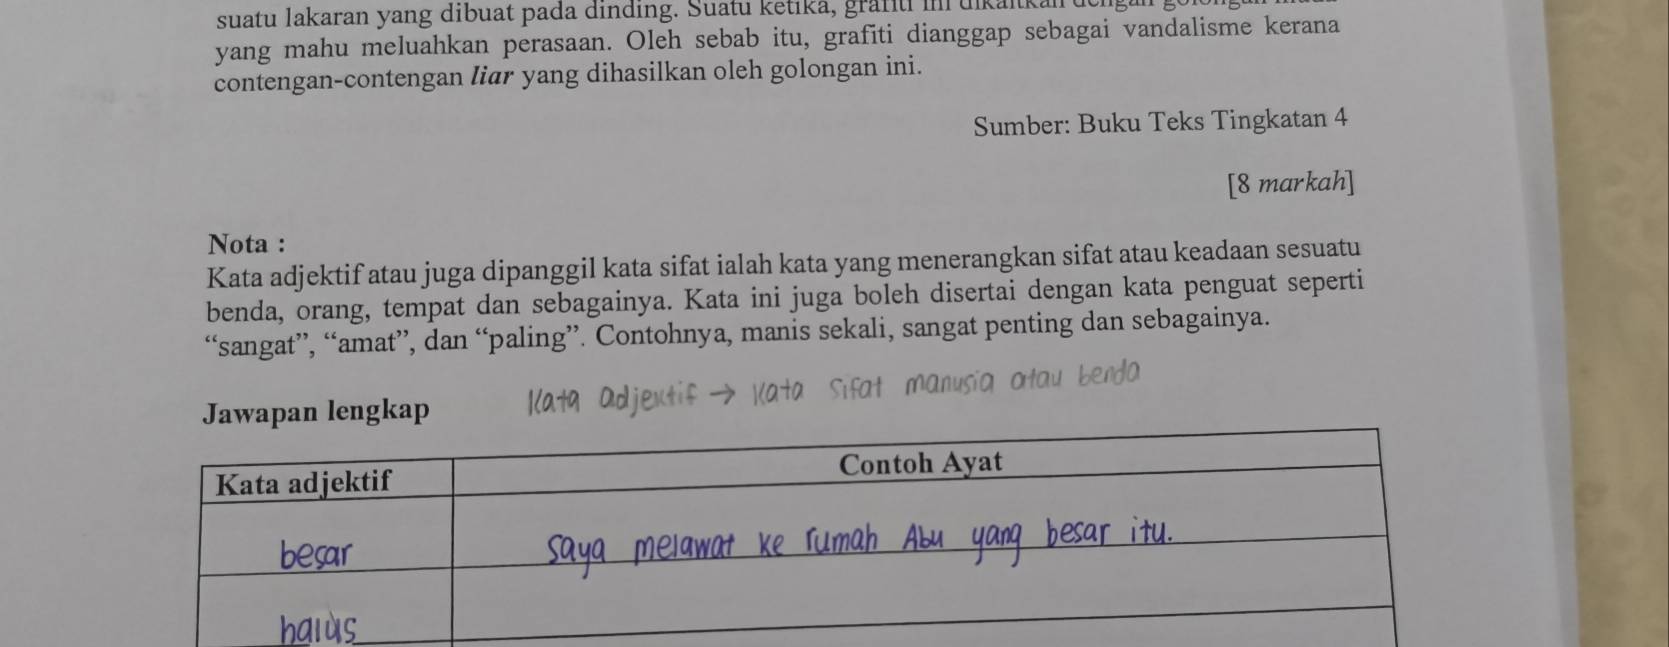 suatu lakaran yang dibuat pada dinding. Suatu ketika, grafiti ini dikaitkan dengan
yang mahu meluahkan perasaan. Oleh sebab itu, grafiti dianggap sebagai vandalisme kerana
contengan-contengan liar yang dihasilkan oleh golongan ini.
Sumber: Buku Teks Tingkatan 4
[8 markah]
Nota :
Kata adjektif atau juga dipanggil kata sifat ialah kata yang menerangkan sifat atau keadaan sesuatu
benda, orang, tempat dan sebagainya. Kata ini juga boleh disertai dengan kata penguat seperti
“sangat”, “amat”, dan “paling”. Contohnya, manis sekali, sangat penting dan sebagainya.
Kata adjektif → Kata sifat manusia atau benda
Jawapan lengkap
Kata adjektif Contoh Ayat
besar saya melawat ke rumah Abu yang besar itu.
halus